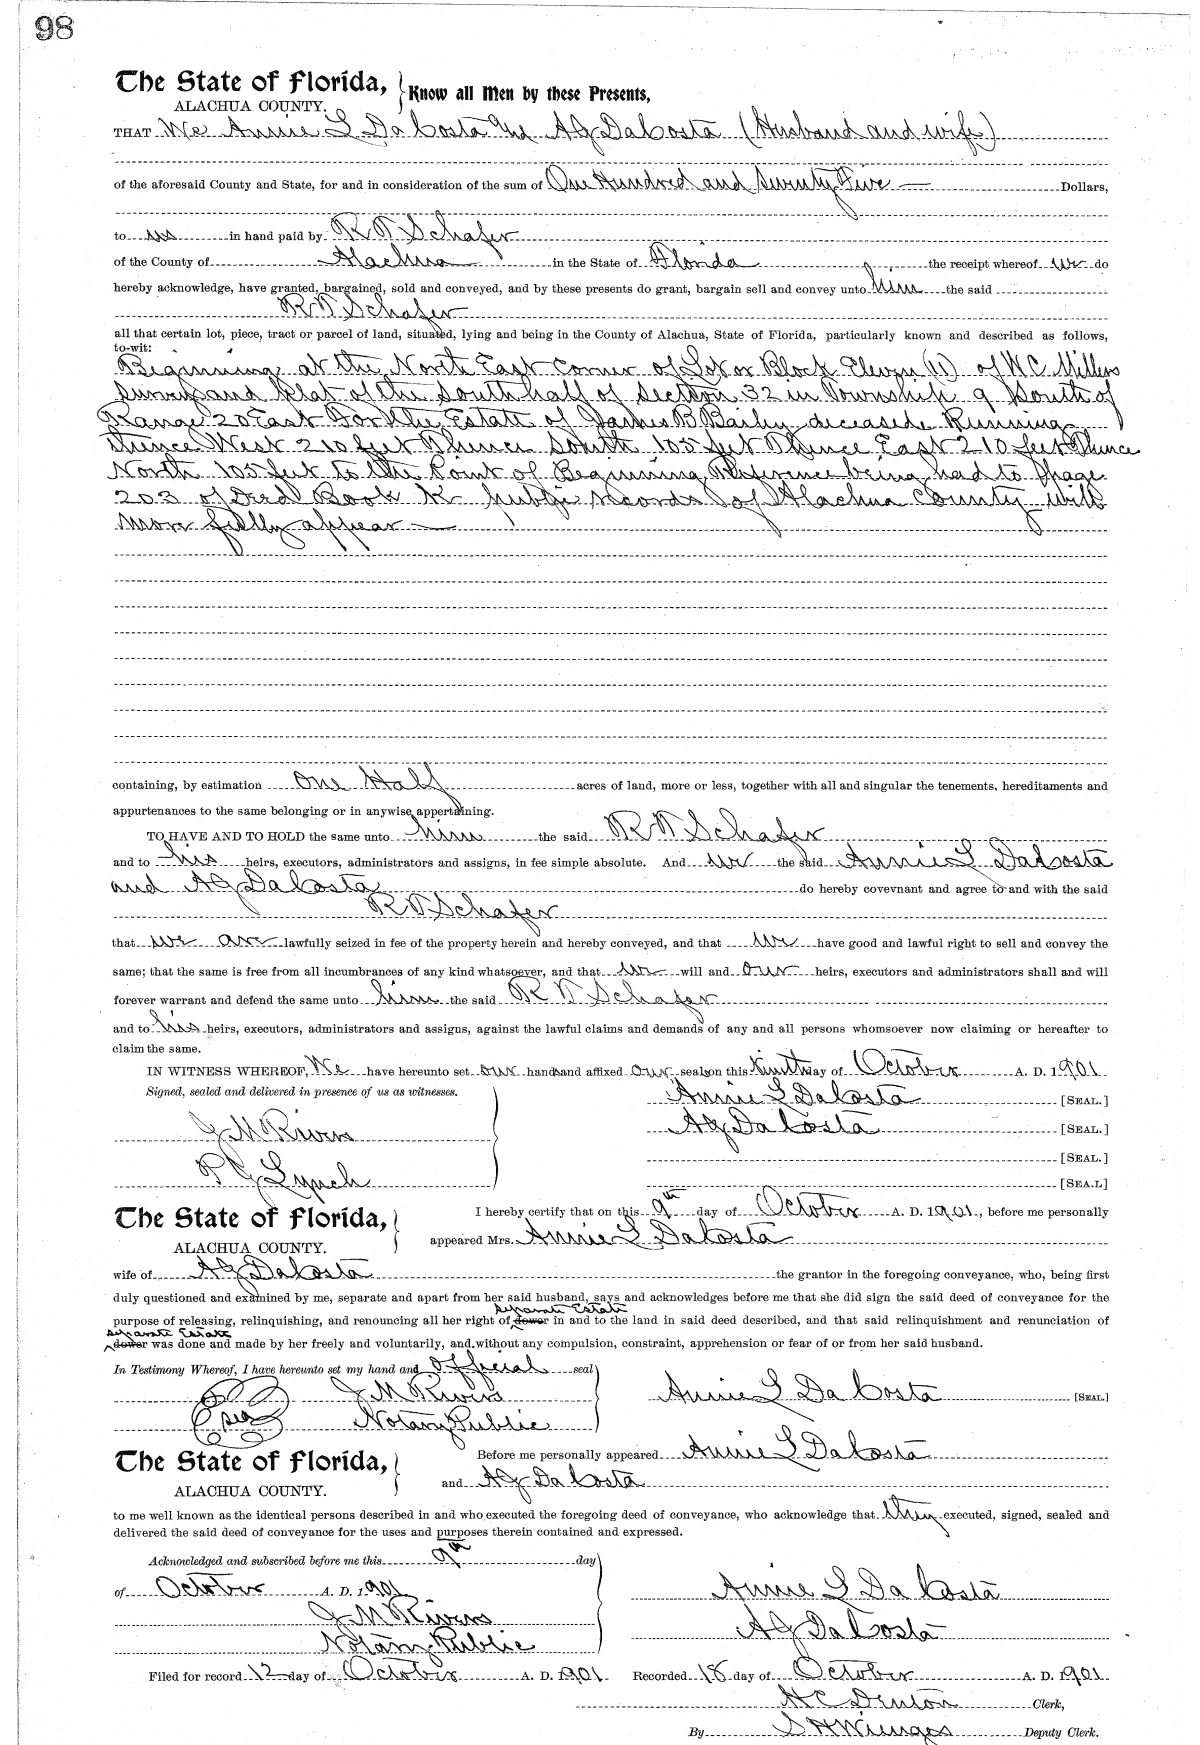 98
The State of Florida, Know all Men by these Presents,
ALACHUA COUNTY.
THAT We Annie L DaCosta and AJ DaCosta (Husband and wife)
of the aforesaid County and State, for and in consideration of the sum of One Hundred and Seventy Five Dollars,
to us in hand paid by R T Schafer
of the County of Alachua in the State of Florida the receipt whereof we do
hereby acknowledge, have granted, bargained, sold and conveyed, and by these presents do grant, bargain sell and convey unto him the said
R T Schafer
all that certain lot, piece, tract or parcel of land, situated, lying and being in the County of Alachua, State of Florida, particularly known and described as follows,
to-wit:
Beginning at the North East Corner of Lot or Block Eleven (11) of W C Millers
survey and Plat of the South half of Section 32 in Township 9 South of
Range 20 East For the Estate of James B Baily deceased Running
thence West 210 feet Thence South 105 feet Thence East 210 feet Thence
North 105 feet to the Point of Beginning Reference being had to Page
203 of Deed Book K public records of Alachua County will
more fully appear
containing, by estimation One Half acres of land, more or less, together with all and singular the tenements, hereditaments and
appurtenances to the same belonging or in anywise appertaining.
TO HAVE AND TO HOLD the same unto him the said R T Schafer
and to his heirs, executors, administrators and assigns, in fee simple absolute. And we the said Annie L DaCosta
and AJ DaCosta do hereby covevnant and agree to and with the said
R T Schafer
that we are lawfully seized in fee of the property herein and hereby conveyed, and that we have good and lawful right to sell and convey the
same; that the same is free from all incumbrances of any kind whatsoever, and that we will and our heirs, executors and administrators shall and will
forever warrant and defend the same unto him the said R T Schafer
and to his heirs, executors, administrators and assigns, against the lawful claims and demands of any and all persons whomsoever now claiming or hereafter to
claim the same.
IN WITNESS WHEREOF, We have hereunto set our hands and affixed our seals on this Ninth day of October A. D. 1901
Signed, sealed and delivered in presence of us as witnesses. Annie L DaCosta [SEAL.]
J M Rivers AJ DaCosta [SEAL.]
[SEAL.]
P G Lynch [SEA.L]
The State of Florida, I hereby certify that on this 9th day of October A. D. 1901, before me personally
ALACHUA COUNTY. appeared Mrs. Annie L DaCosta
wife of AJ DaCosta the grantor in the foregoing conveyance, who, being first
duly questioned and examined by me, separate and apart from her said husband, says and acknowledges before me that she did sign the said deed of conveyance for the
separate Estate
purpose of releasing, relinquishing, and renouncing all her right of dower in and to the land in said deed described, and that said relinquishment and renunciation of
separate Estate
dower was done and made by her freely and voluntarily, and without any compulsion, constraint, apprehension or fear of or from her said husband.
In Testimony Whereof, I have hereunto set my hand and official seal
J M Rivers Annie L DaCosta [SEAL]
Notary Public
The State of Florida, Before me personally appeared Annie L DaCosta
ALACHUA COUNTY. and AJ DaCosta
to me well known as the identical persons described in and who executed the foregoing deed of conveyance, who acknowledge that they executed, signed, sealed and
delivered the said deed of conveyance for the uses and purposes therein contained and expressed.
Acknowledged and subscribed before me this 9th day
of October A. D. 1901 Annie L DaCosta
J M Rivers AJ DaCosta
Notary Public
Filed for record 12 day of October A. D. 1901 Recorded 18 day of October A. D. 1901
H C Denton Clerk,
By S H Wienges Deputy Clerk.